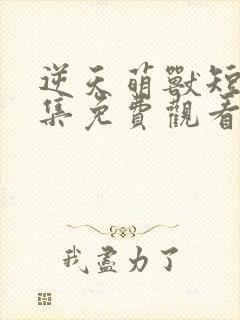 逆天萌獸短
集免費觀看
我盡力了